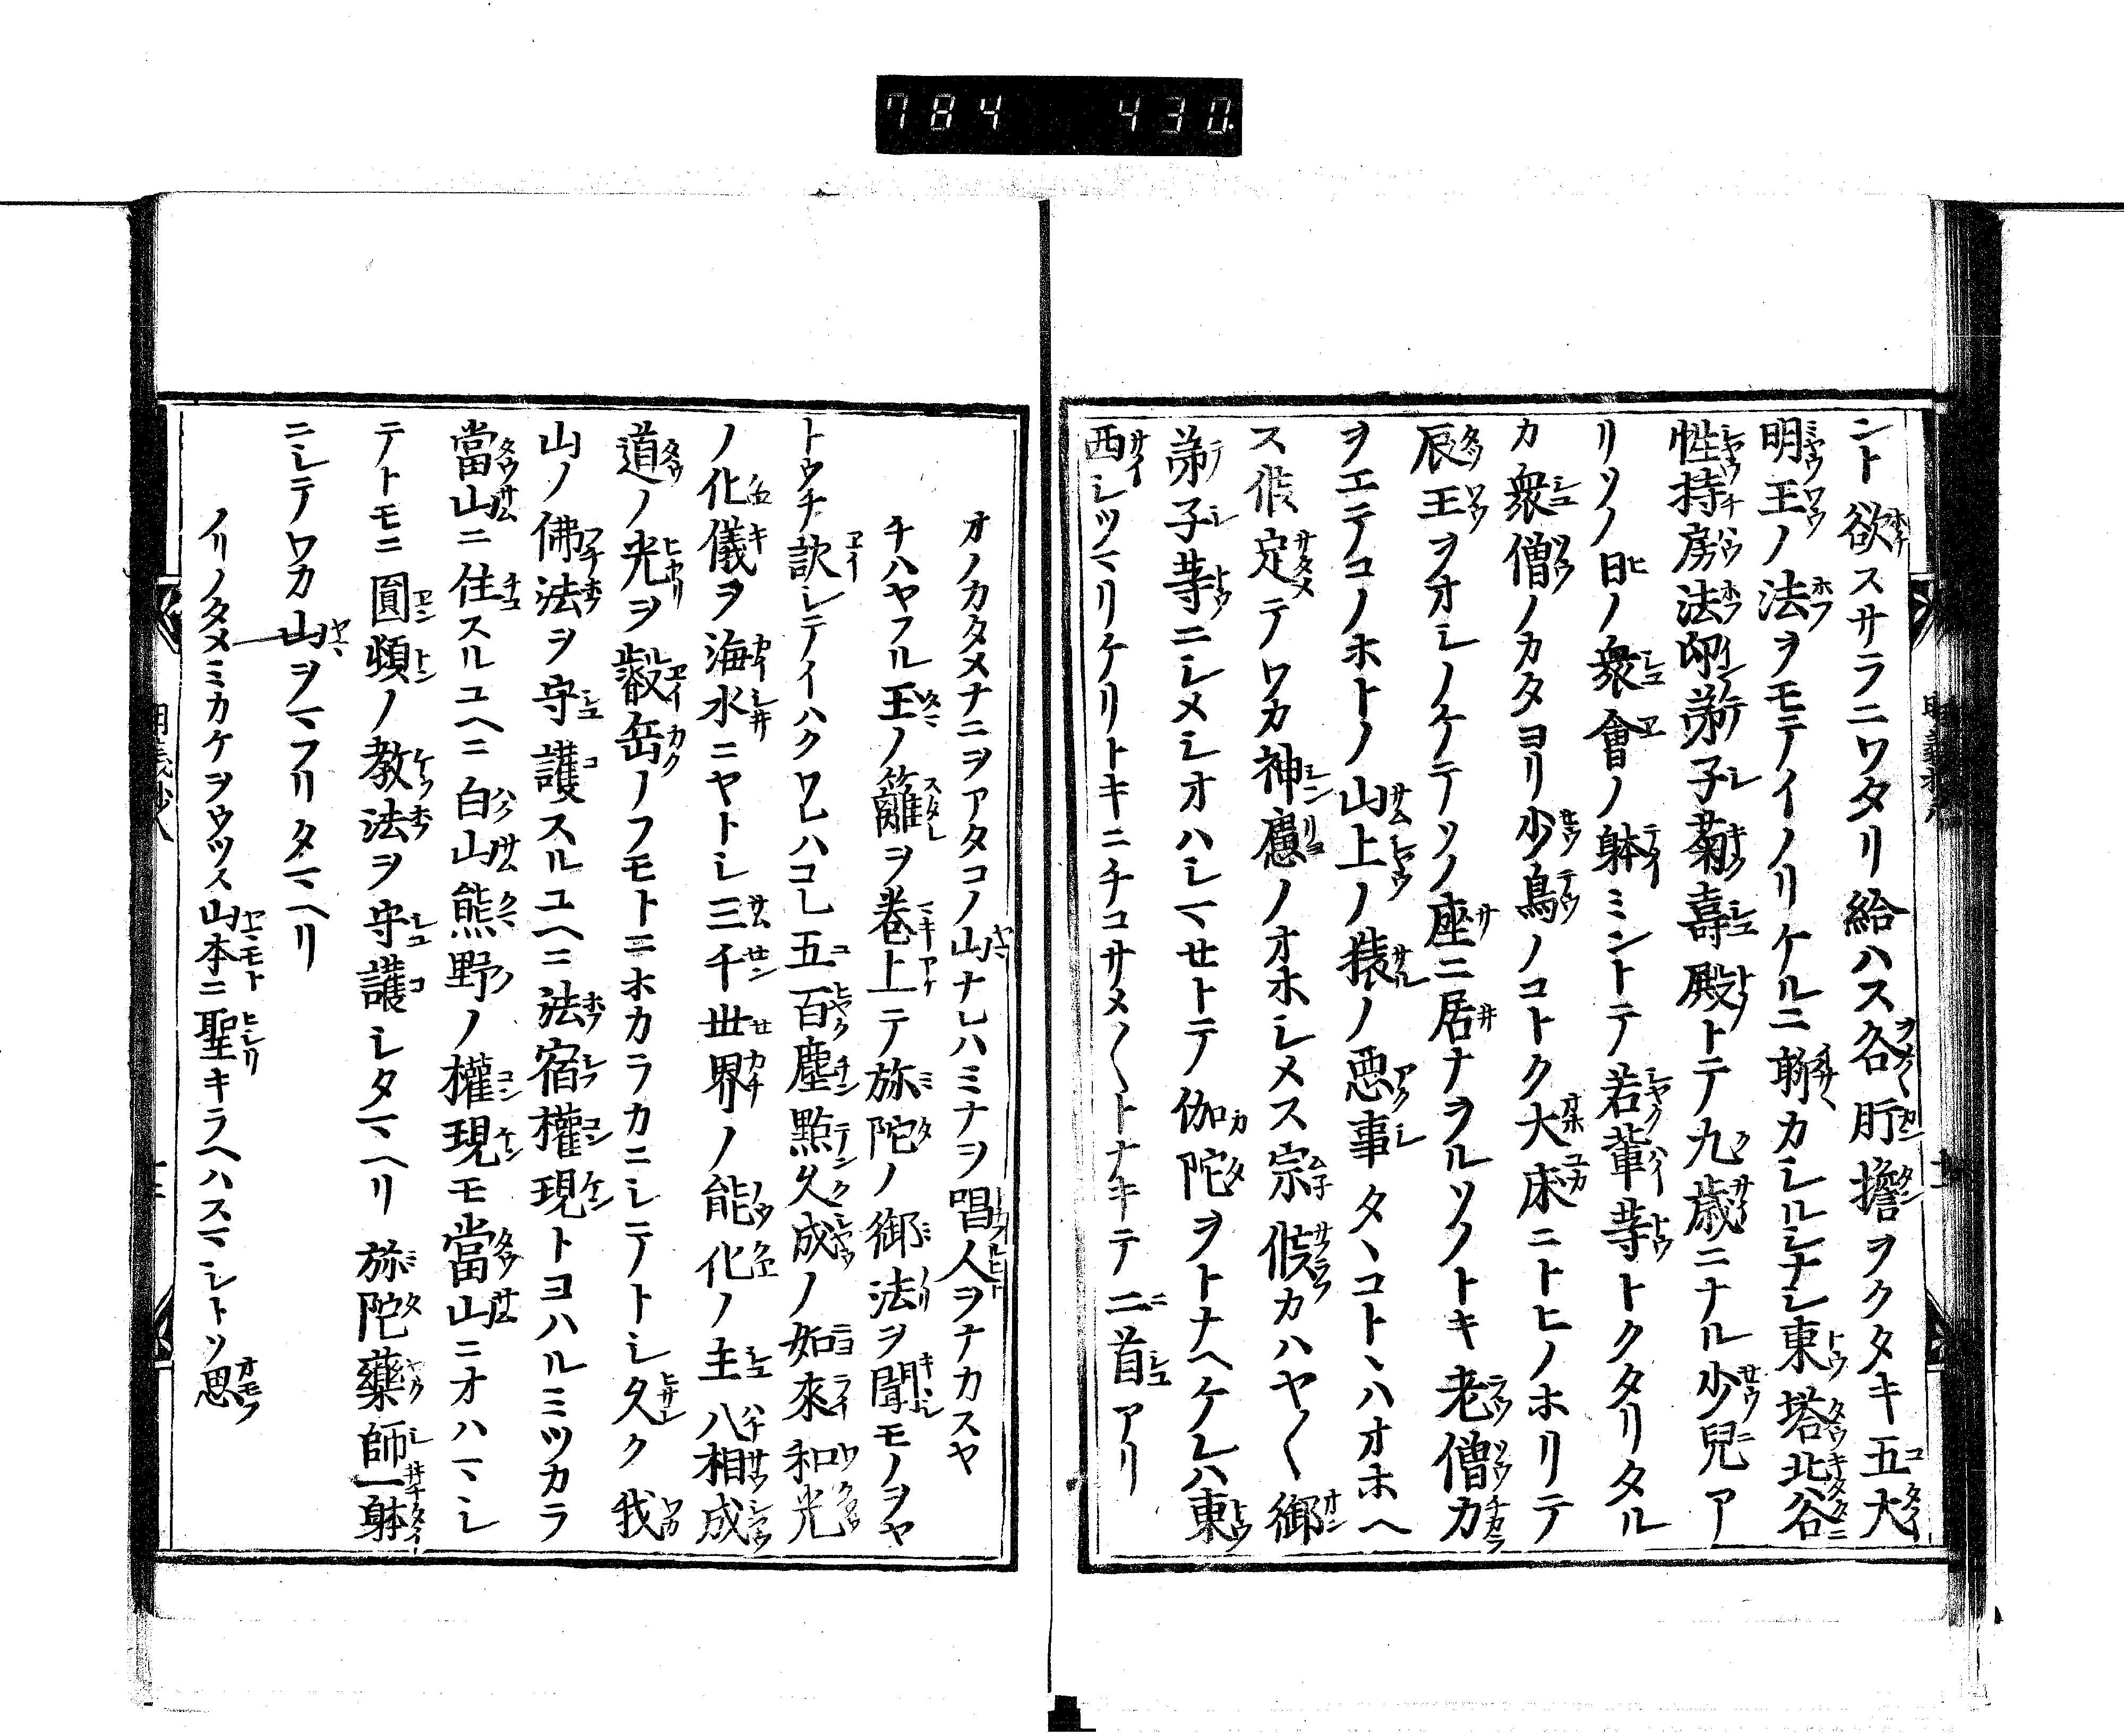 784 430
ント欲スサラニワタリ給ハス各肝擔ヲクタキ五大
明王ノ法ヲモテイノリケルニ聊カシルシナシ東塔北谷
性持房法印弟子菊壽殿トテ九歳ニナル少兒ア
リソノ日ノ衆會ノ躰ミントテ若輩等トクタリタル
カ衆僧ノカタヨリ少鳥ノコトク大床ニトヒノホリテ
辰王ヲオシノケテソノ座ニ居ナヲルソノトキ老僧カ
ヲエテコノホトノ山上ノ猿ノ悪事タヽコトヽハオホヘ
ス 定テワカ神慮ノオホシメス宗 カハヤ〱御
弟子等ニシメシオハシマセトテ伽陀ヲトナヘケレハ東
西シツマリケリトキニチコサメ〱トナキテ二首アリ
オノカタメナニヲアタコノ山ナレハミナヲ唱人ヲナカスヤ
チハヤフル玉ノ簾ヲ巻上テ弥陀ノ御法ヲ聞モノヲヤ
トウチ詠シテイハクワレハコレ五百塵點久成ノ如來和光
ノ化儀ヲ海水ニヤトシ三千世界ノ能化ノ主八相成
道ノ光ヲ叡岳ノフモトニホカラカニシテトシ久ク我
山ノ佛法ヲ守護スルユヘニ法宿權現トヨハルミツカラ
當山ニ住スルユヘニ白山熊野ノ權現モ當山ニオハマシ
テトモニ圓頓ノ教法ヲ守護シタマヘリ弥陀藥師一躰
ニシテワカ山ヲマフリタマヘリ
イノリノタメミカケヲウツス山本ニ聖キラヘハスマシトソ思